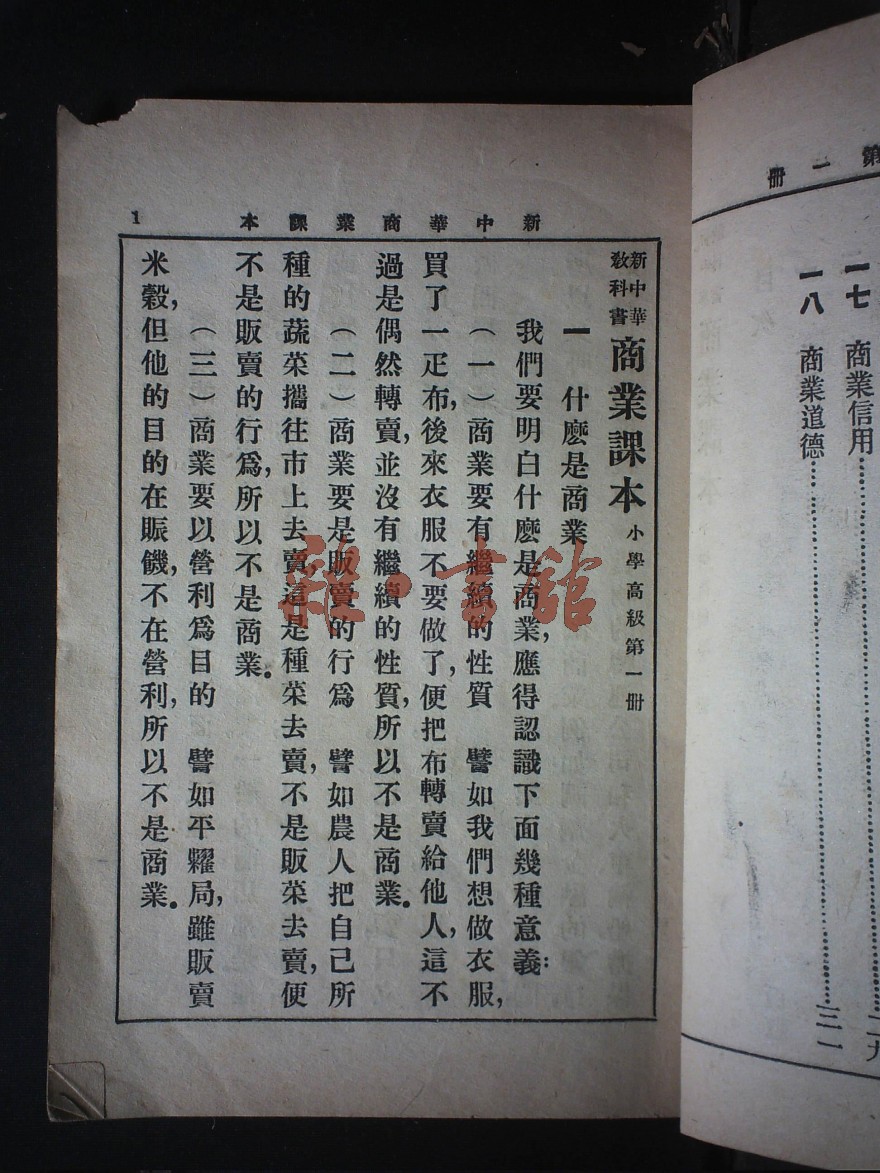 第一册
一七 商業信用……二九
一八 商業道德……三一
新中華商業課本
1
新中華教科書 商業課本 小學高級第一册
一 什麽是商業
我們要明白什麽是商業,應得認識下面幾種意義:
(一)商業要有繼續的性質 譬如我們想做衣服,
買了一疋布,後來衣服不要做了,便把布轉賣給他人,這不
過是偶然轉賣,並沒有繼續的性質,所以不是商業。
(二)商業要是販賣的行爲 譬如農人把自己所
種的蔬菜攜往市上去賣,這是種菜去賣,不是販菜去賣,便
不是販賣的行爲,所以不是商業。
(三)商業要以營利爲目的 譬如平糶局,雖販賣
米穀,但他的目的在賑饑,不在營利,所以不是商業。
雜·書館